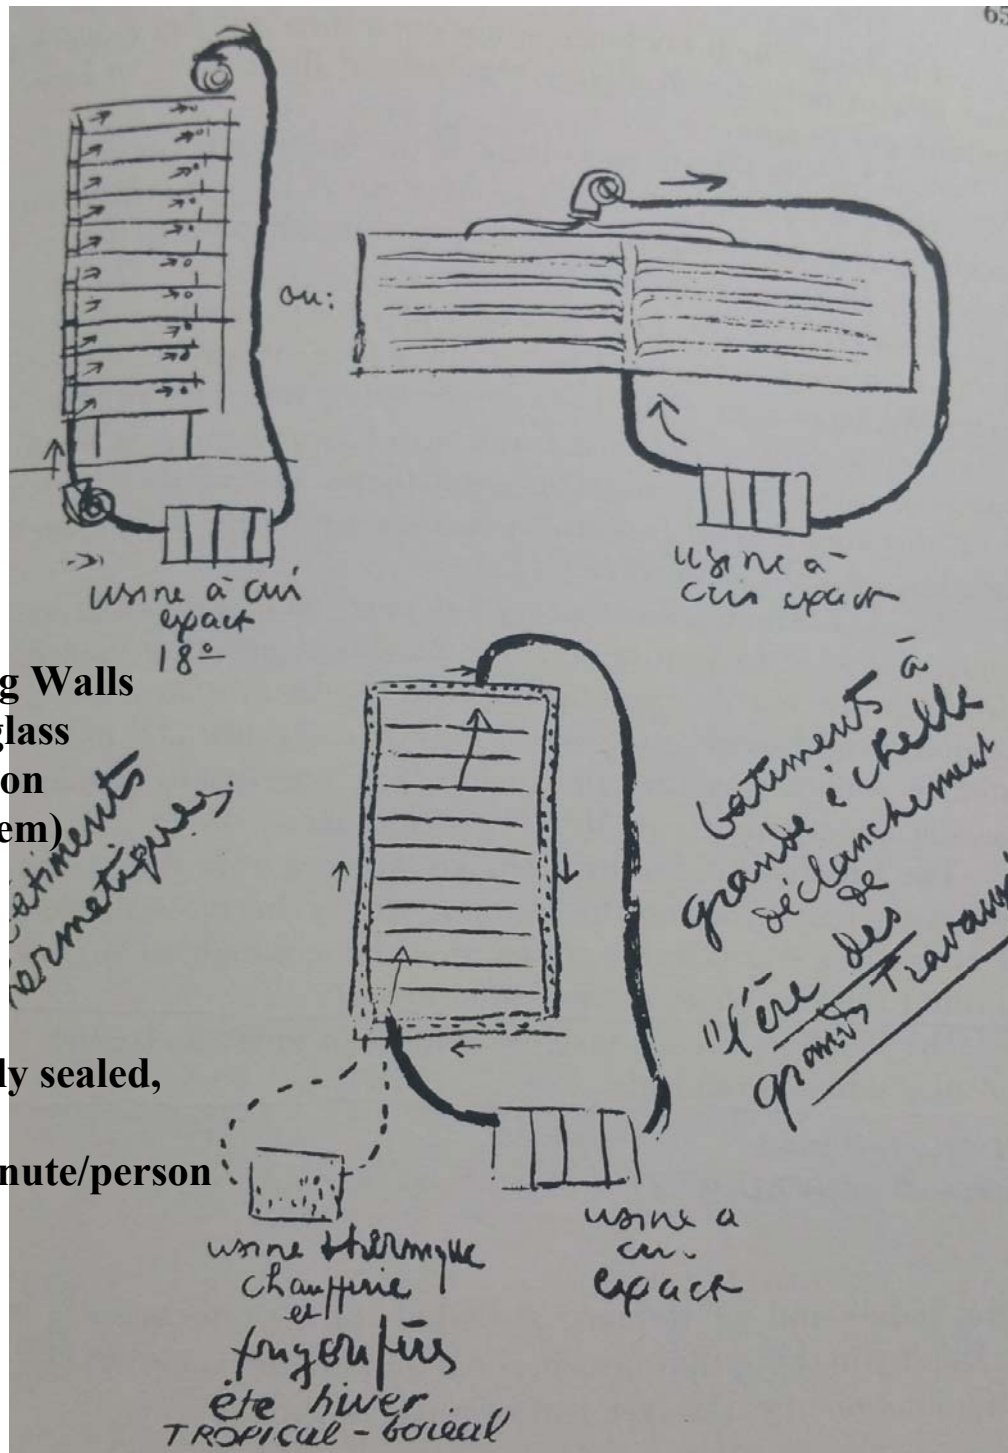 65
ou:
usine à air
exact
18°
usine à
air exact
g Walls
glass
on
em)
bâtiments
hermétiques
bâtiments à
grande échelle
déclanchement
de
"l'ère des
grands Travaux
ly sealed,
nute/person
usine thermique
chaufferie
et
frigorifères
été hiver
TROPICAL - boréal
usine a
air
exact